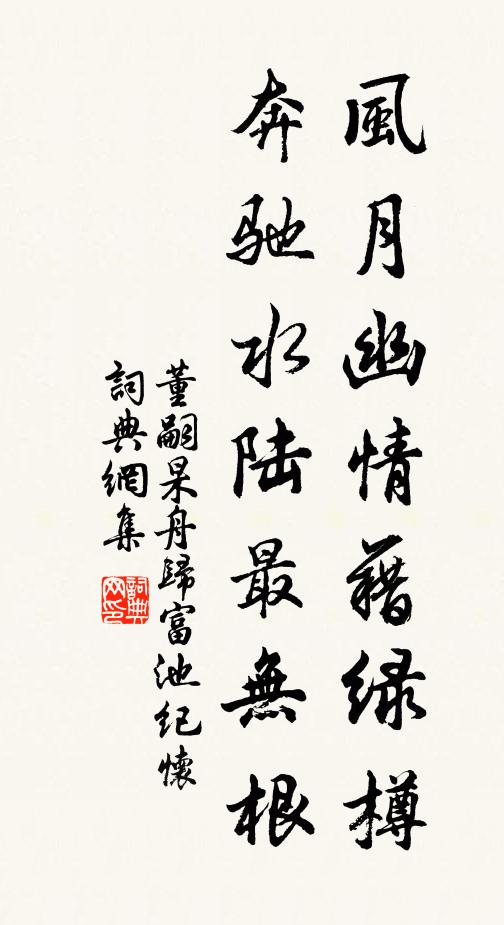 風月幽情藉绿樽
奔驰水陆最無根
董嗣杲舟歸富池纪懷
詞典網集
詞典網印